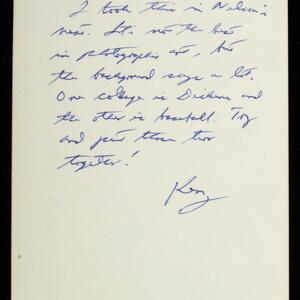 I took this in Nelson's
nest. It's not the best
in photographic art, but
the background says a lot.
One college is Dickens and
the other is baseball. Try
and put those two
together!